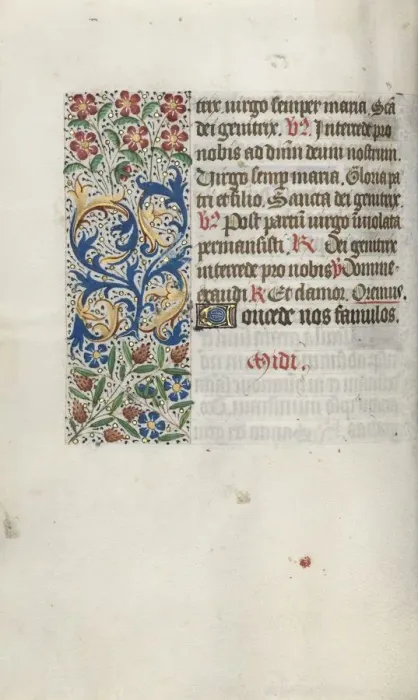 trix. virgo semper maria. Scā
dei genitrix. v̓. Intercede pro
nobis ad dñm deum nostrum.
Virgo semp maria. Gloria pa
tri et filio. Sancta dei genitrix.
v̓. Post partū virgo īviolata
permansisti. R Dei genitrix
intercede pro nobis v̓ Domine
exaudi R Et clamor. Oremus.
Concede nos famulos.
Midi.